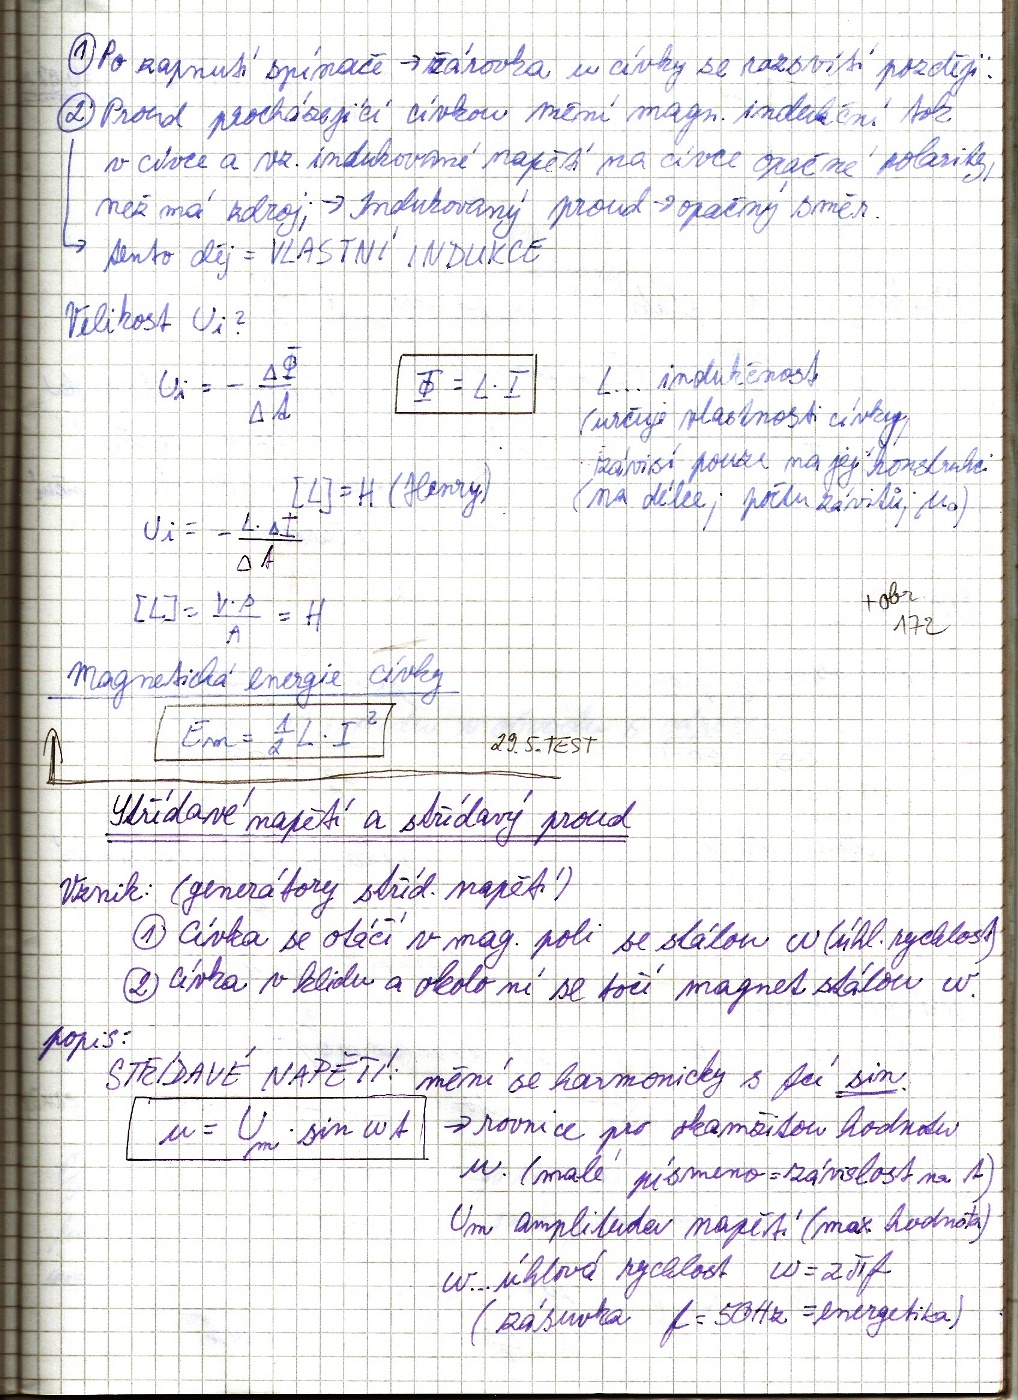 ① Po zapnutí spínače → žárovka u cívky se rozsvítí později.
② Proud procházející cívkou mění magn. indukční tok
v cívce a vz. indukované napětí na cívce opačné polarity,
než má zdroj, → Indukovaný proud → opačný směr.
→ tento děj = VLASTNÍ INDUKCE
Velikost Ui?
Ui = - ΔΦ / Δt
Φ = L · I
L... indukčnost
(určuje vlastnosti cívky,
závisí pouze na její konstrukci
(na délce, počtu závitů, μ0)
[L] = H (Henry)
Ui = - L · ΔI / Δt
[L] = V·s / A = H
+ obr
172
Magnetická energie cívky
Em = 1/2 L · I²
29.5. TEST
Střídavé napětí a střídavý proud
Vznik: (generátory stříd. napětí)
① Cívka se otáčí v mag. poli se stálou ω (úhl. rychlost)
② Cívka v klidu a okolo ní se točí magnet stálou ω.
popis:
STŘÍDAVÉ NAPĚTÍ: mění se harmonicky s fcí sin.
u = Um · sin ωt
→ rovnice pro okamžitou hodnotu
u. (malé písmeno = závislost na t)
Um amplituda napětí (max. hodnota)
ω... úhlová rychlost ω = 2πf
(zásuvka f = 50Hz = energetika)